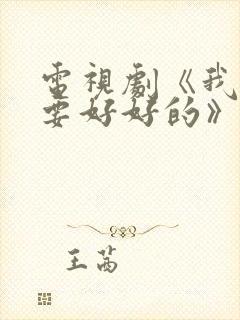 電視劇《我
要好好的》
王茜